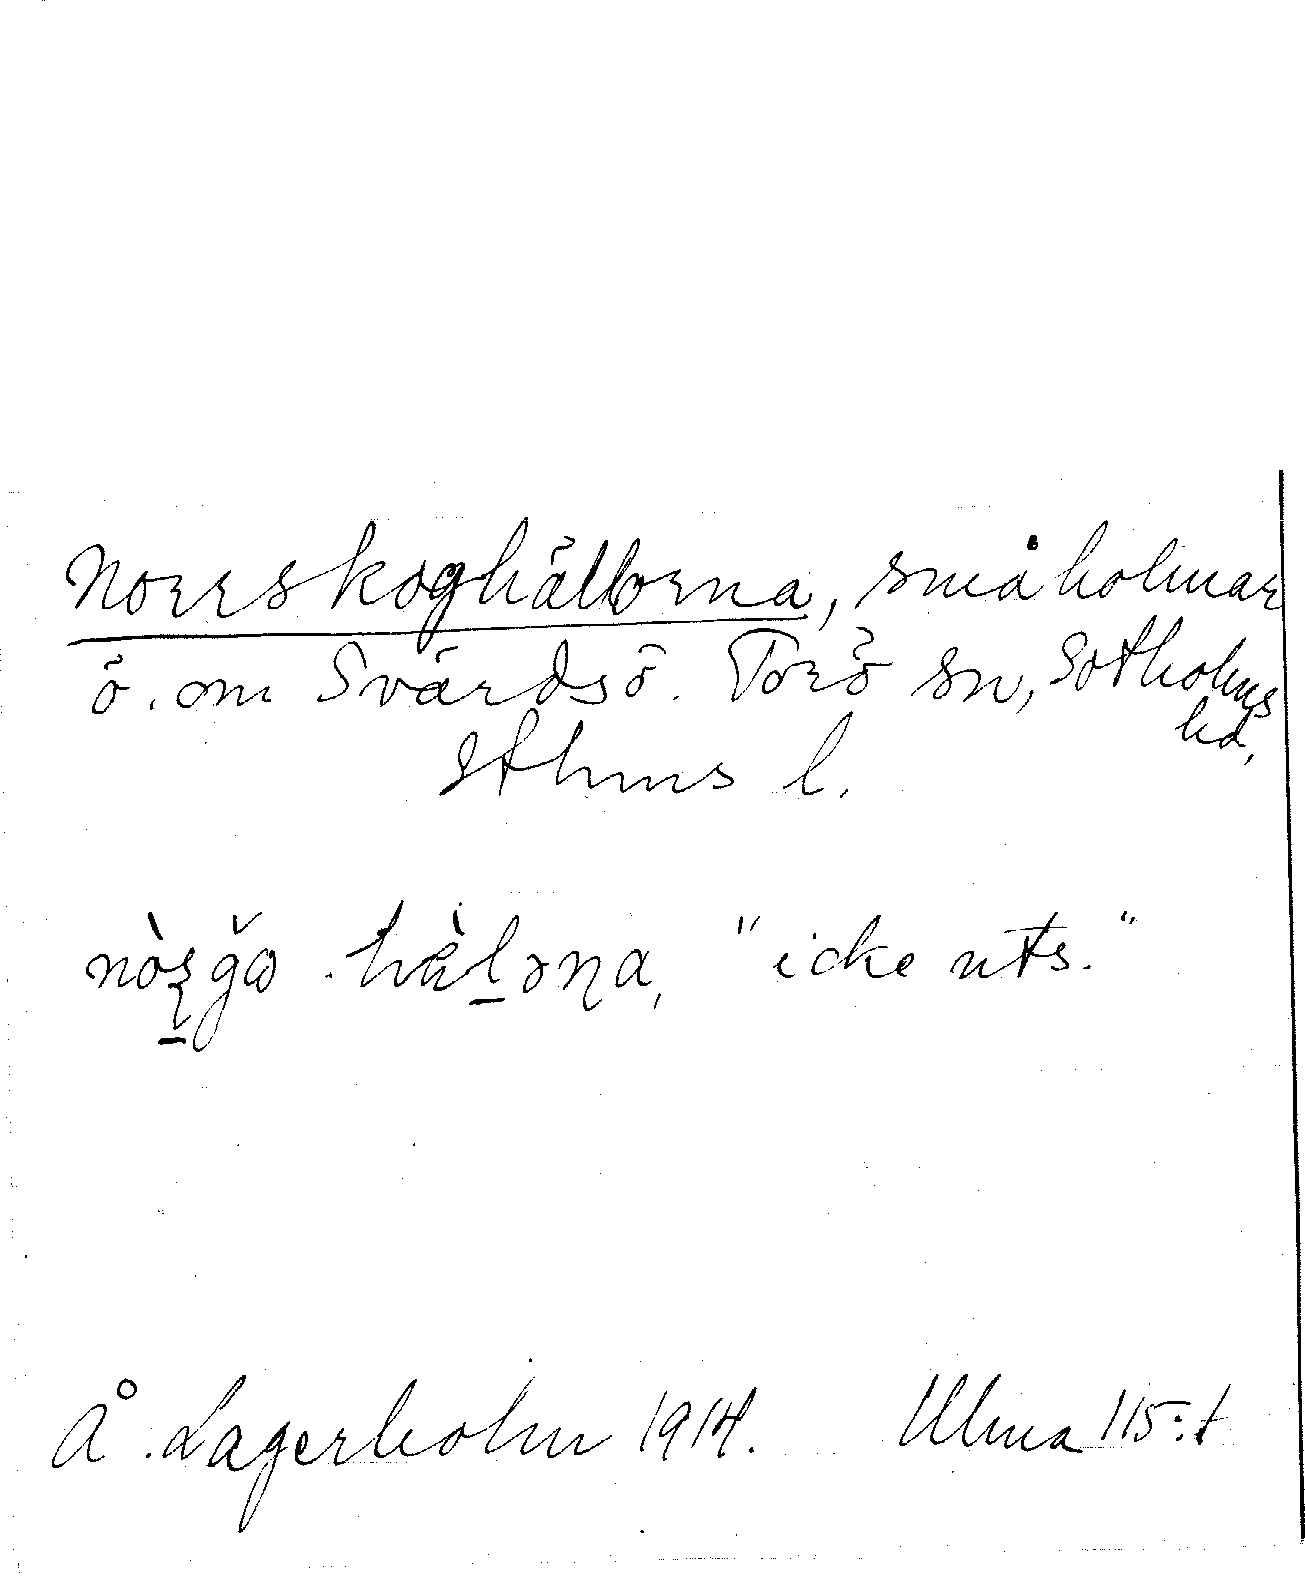 Norrskoghällorna, småholmar
ö. om Svärdsö. Torö sn, Sotholms
hd,
Sthms l.
"icke uts."
Å. Lagerholm 1914. Ulma 115:1